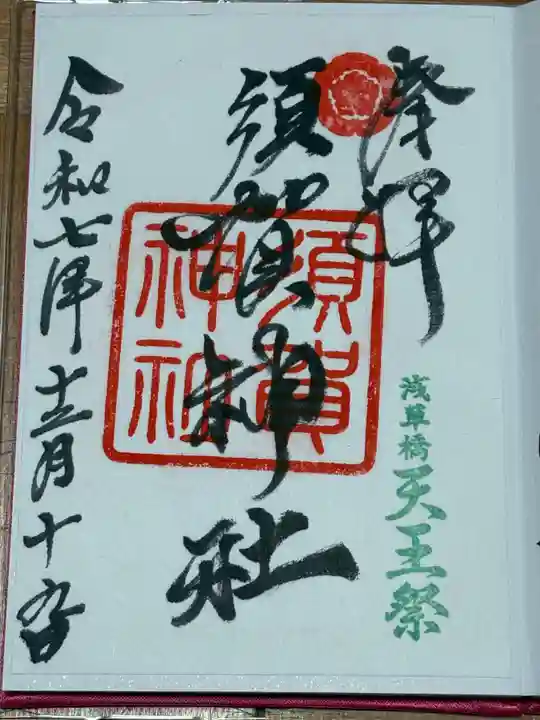 奉拝
浅草橋 天王祭
須賀神社
須賀
神社
令和七年十二月十九日